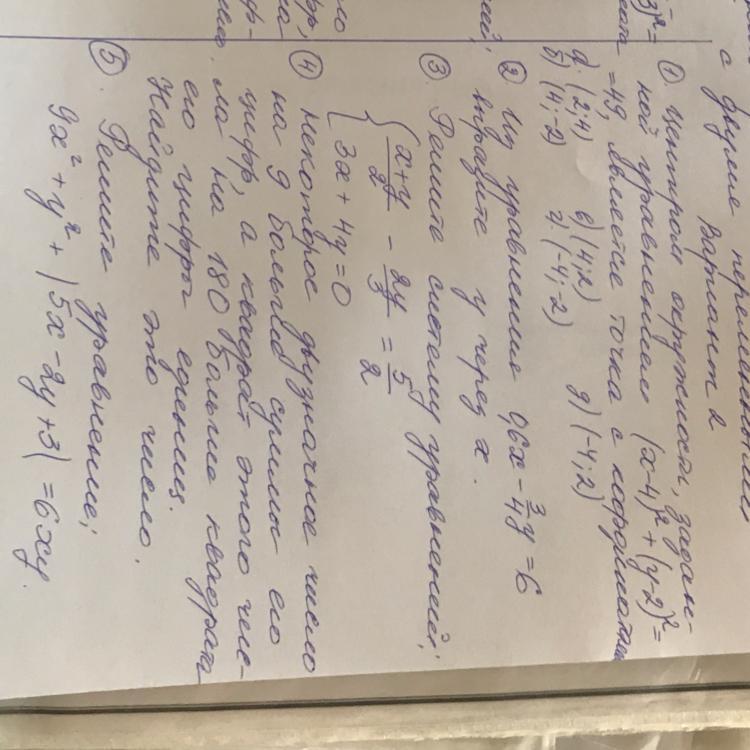 с двумя переменными
Вариант 2
① Центром окружности, задан-
ной уравнением (x-4)² + (y-2)² =
= 49, является точка с координатами
а. (2; 4) в) (4; 2) д) (-4; 2)
б) (4; -2) г. (-4; -2)
② Из уравнения 0,6x - 3/4 y = 6
выразите y через x.
③ Решите систему уравнений:
{ (x+y)/2 - 2y/3 = 5/2
3x + 4y = 0
④ Некоторое двузначное число
на 9 больше суммы его
цифр, а квадрат этого чис-
ла на 180 больше квадрата
его цифры единиц.
Найдите это число.
⑤. Решите уравнение:
9x² + y² + |5x - 2y + 3| = 6xy.